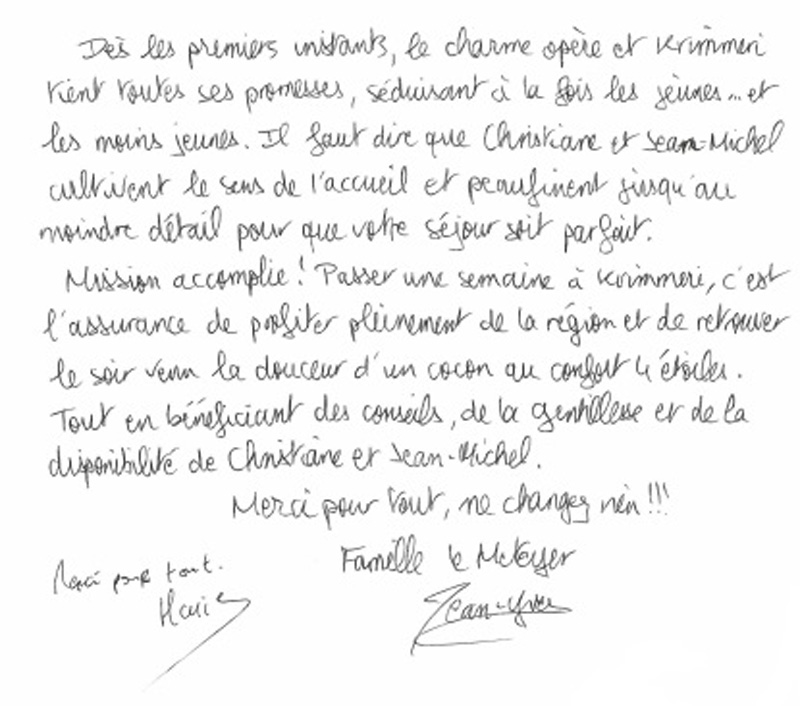 Dès les premiers instants, le charme opère et Krimmeri
tient toutes ses promesses, séduisant à la fois les jeunes... et
les moins jeunes. Il faut dire que Christiane et Jean-Michel
cultivent le sens de l'accueil et peaufinent jusqu'au
moindre détail pour que votre séjour soit parfait.
Mission accomplie ! Passer une semaine à Krimmeri, c'est
l'assurance de profiter pleinement de la région et de retrouver
le soir venu la douceur d'un cocon au confort 4 étoiles.
Tout en bénéficiant des conseils, de la gentillesse et de la
disponibilité de Christiane et Jean-Michel.
Merci pour tout, ne changez rien !!!
Famille le
Jean-Yves
Merci pour tout.
Marie